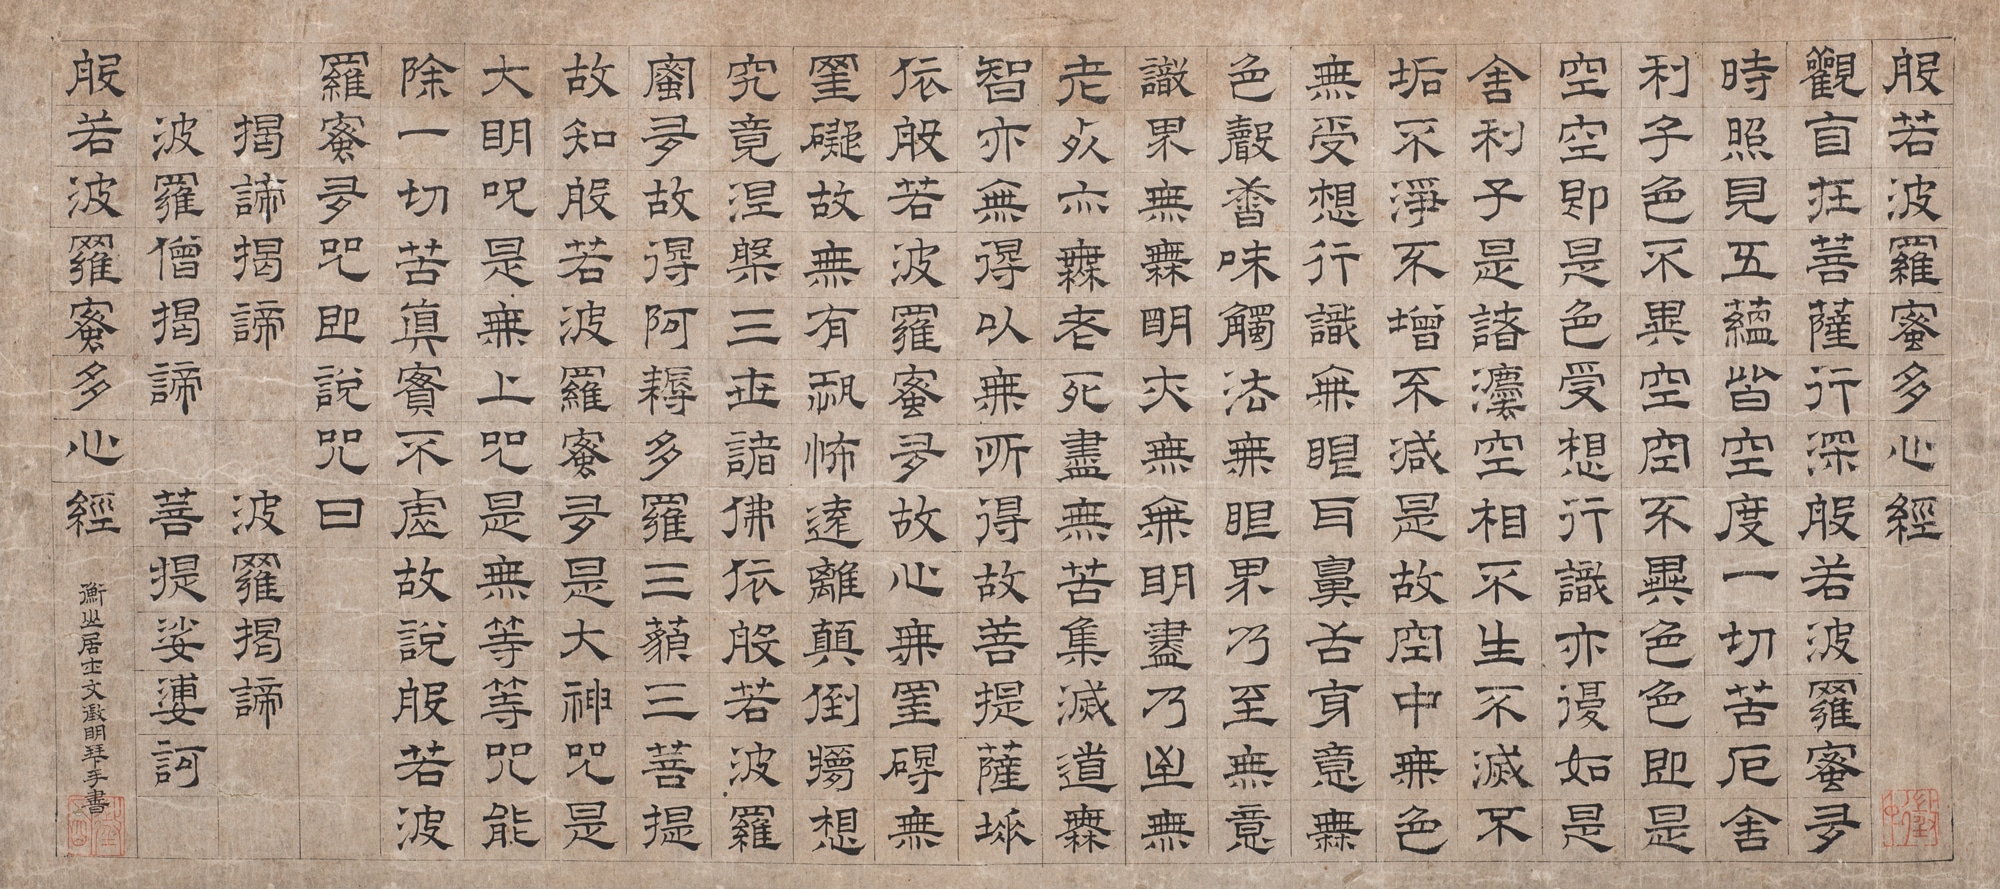 般若波羅蜜多心經
觀盲在菩薩行深般若波羅蜜多
時照見五蘊皆空度一切苦厄舍
利子色不異空空不異色色即是
空空即是色受想行識亦復如是
舍利子是諸灋空相不生不滅不
垢不淨不增不減是故空中無色
無受想行識無眼耳鼻舌身意無
色聲香味觸法無眼界乃至無意
識界無無明亦無無明盡乃至無
老死亦無老死盡無苦集滅道無
智亦無得以無所得故菩提薩埵
依般若波羅蜜多故心無罣礙無
罣礙故無有恐怖遠離顛倒夢想
究竟涅槃三世諸佛依般若波羅
蜜多故得阿耨多羅三藐三菩提
故知般若波羅蜜多是大神咒是
大明咒是無上咒是無等等咒能
除一切苦真實不虛故說般若波
羅蜜多咒即說咒曰
揭諦揭諦 波羅揭諦
波羅僧揭諦 菩提娑婆訶
般若波羅蜜多心經
衡山居士文徵明琴手書